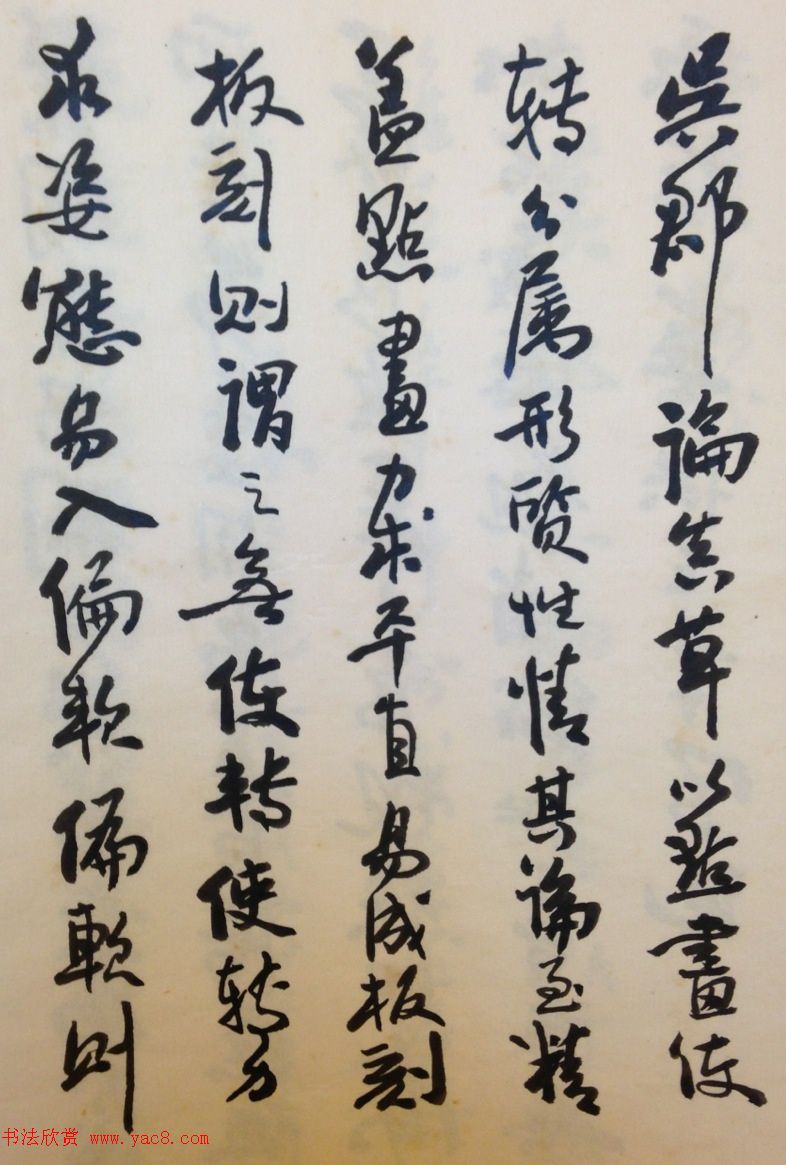 吳郡論真草以點畫使
轉分属形質性情其論至精
盖點畫力求平直易成板刻
板刻則謂之無使轉使轉力
求姿態易入偏軟偏軟則
书法欣赏 www.yac8.com